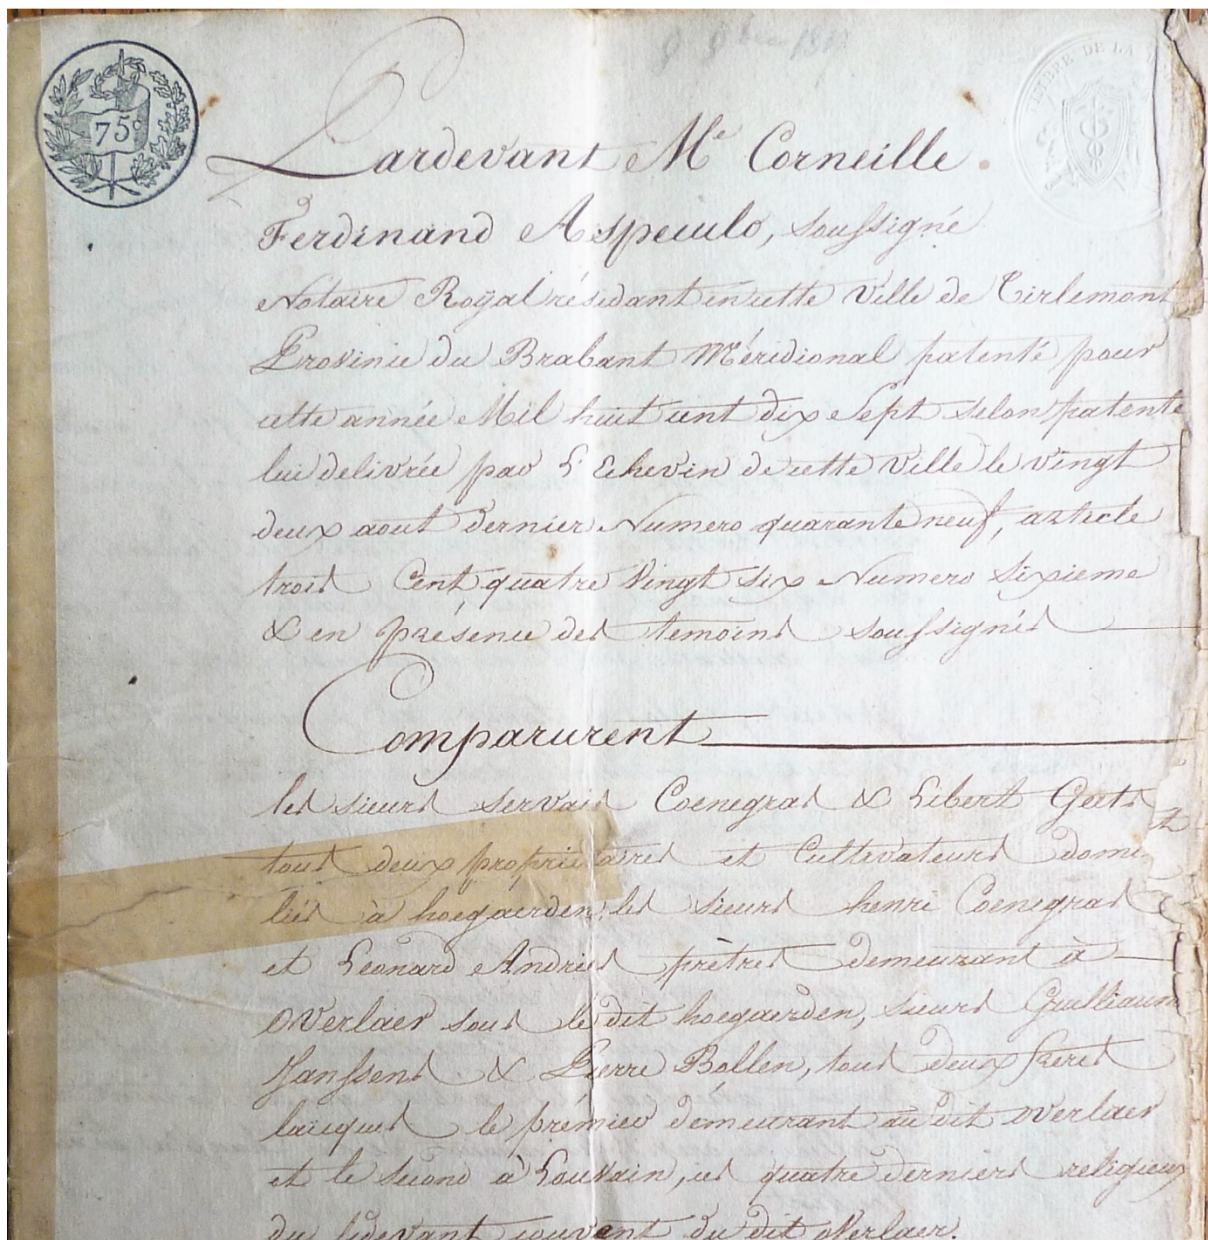 75c
TIMBRE DE LA
Pardevant Me Corneille
Ferdinand Aspeculo, soussigné
Notaire Royal résidant en cette Ville de Tirlemont
Province du Brabant Méridional patenté pour
cette année Mil huit cent dix Sept selon patente
lui delivrée par L'Echevin de cette Ville le vingt
deux aout dernier Numero quarante neuf, article
trois Cent quatre Vingt six Numero Sixieme
& en présence des temoins soussignés
Comparurent
les sieurs Servais Coenegras & Libert Geets
tous deux proprietaires et Cultivateurs domi
liés à hoegaerden, les sieurs henri Coenegras
et Léonard Andries prêtres demeurant à
Overlaer sous le dit hoegaerden, sieurs Guilliaum
Janssens & Pierre Bollen, tous deux freres
laïques le prémier demeurant au dit Overlaer
et le second à Louvain, ces quatre derniers religieux
du cidevant couvent du dit Overlaer.